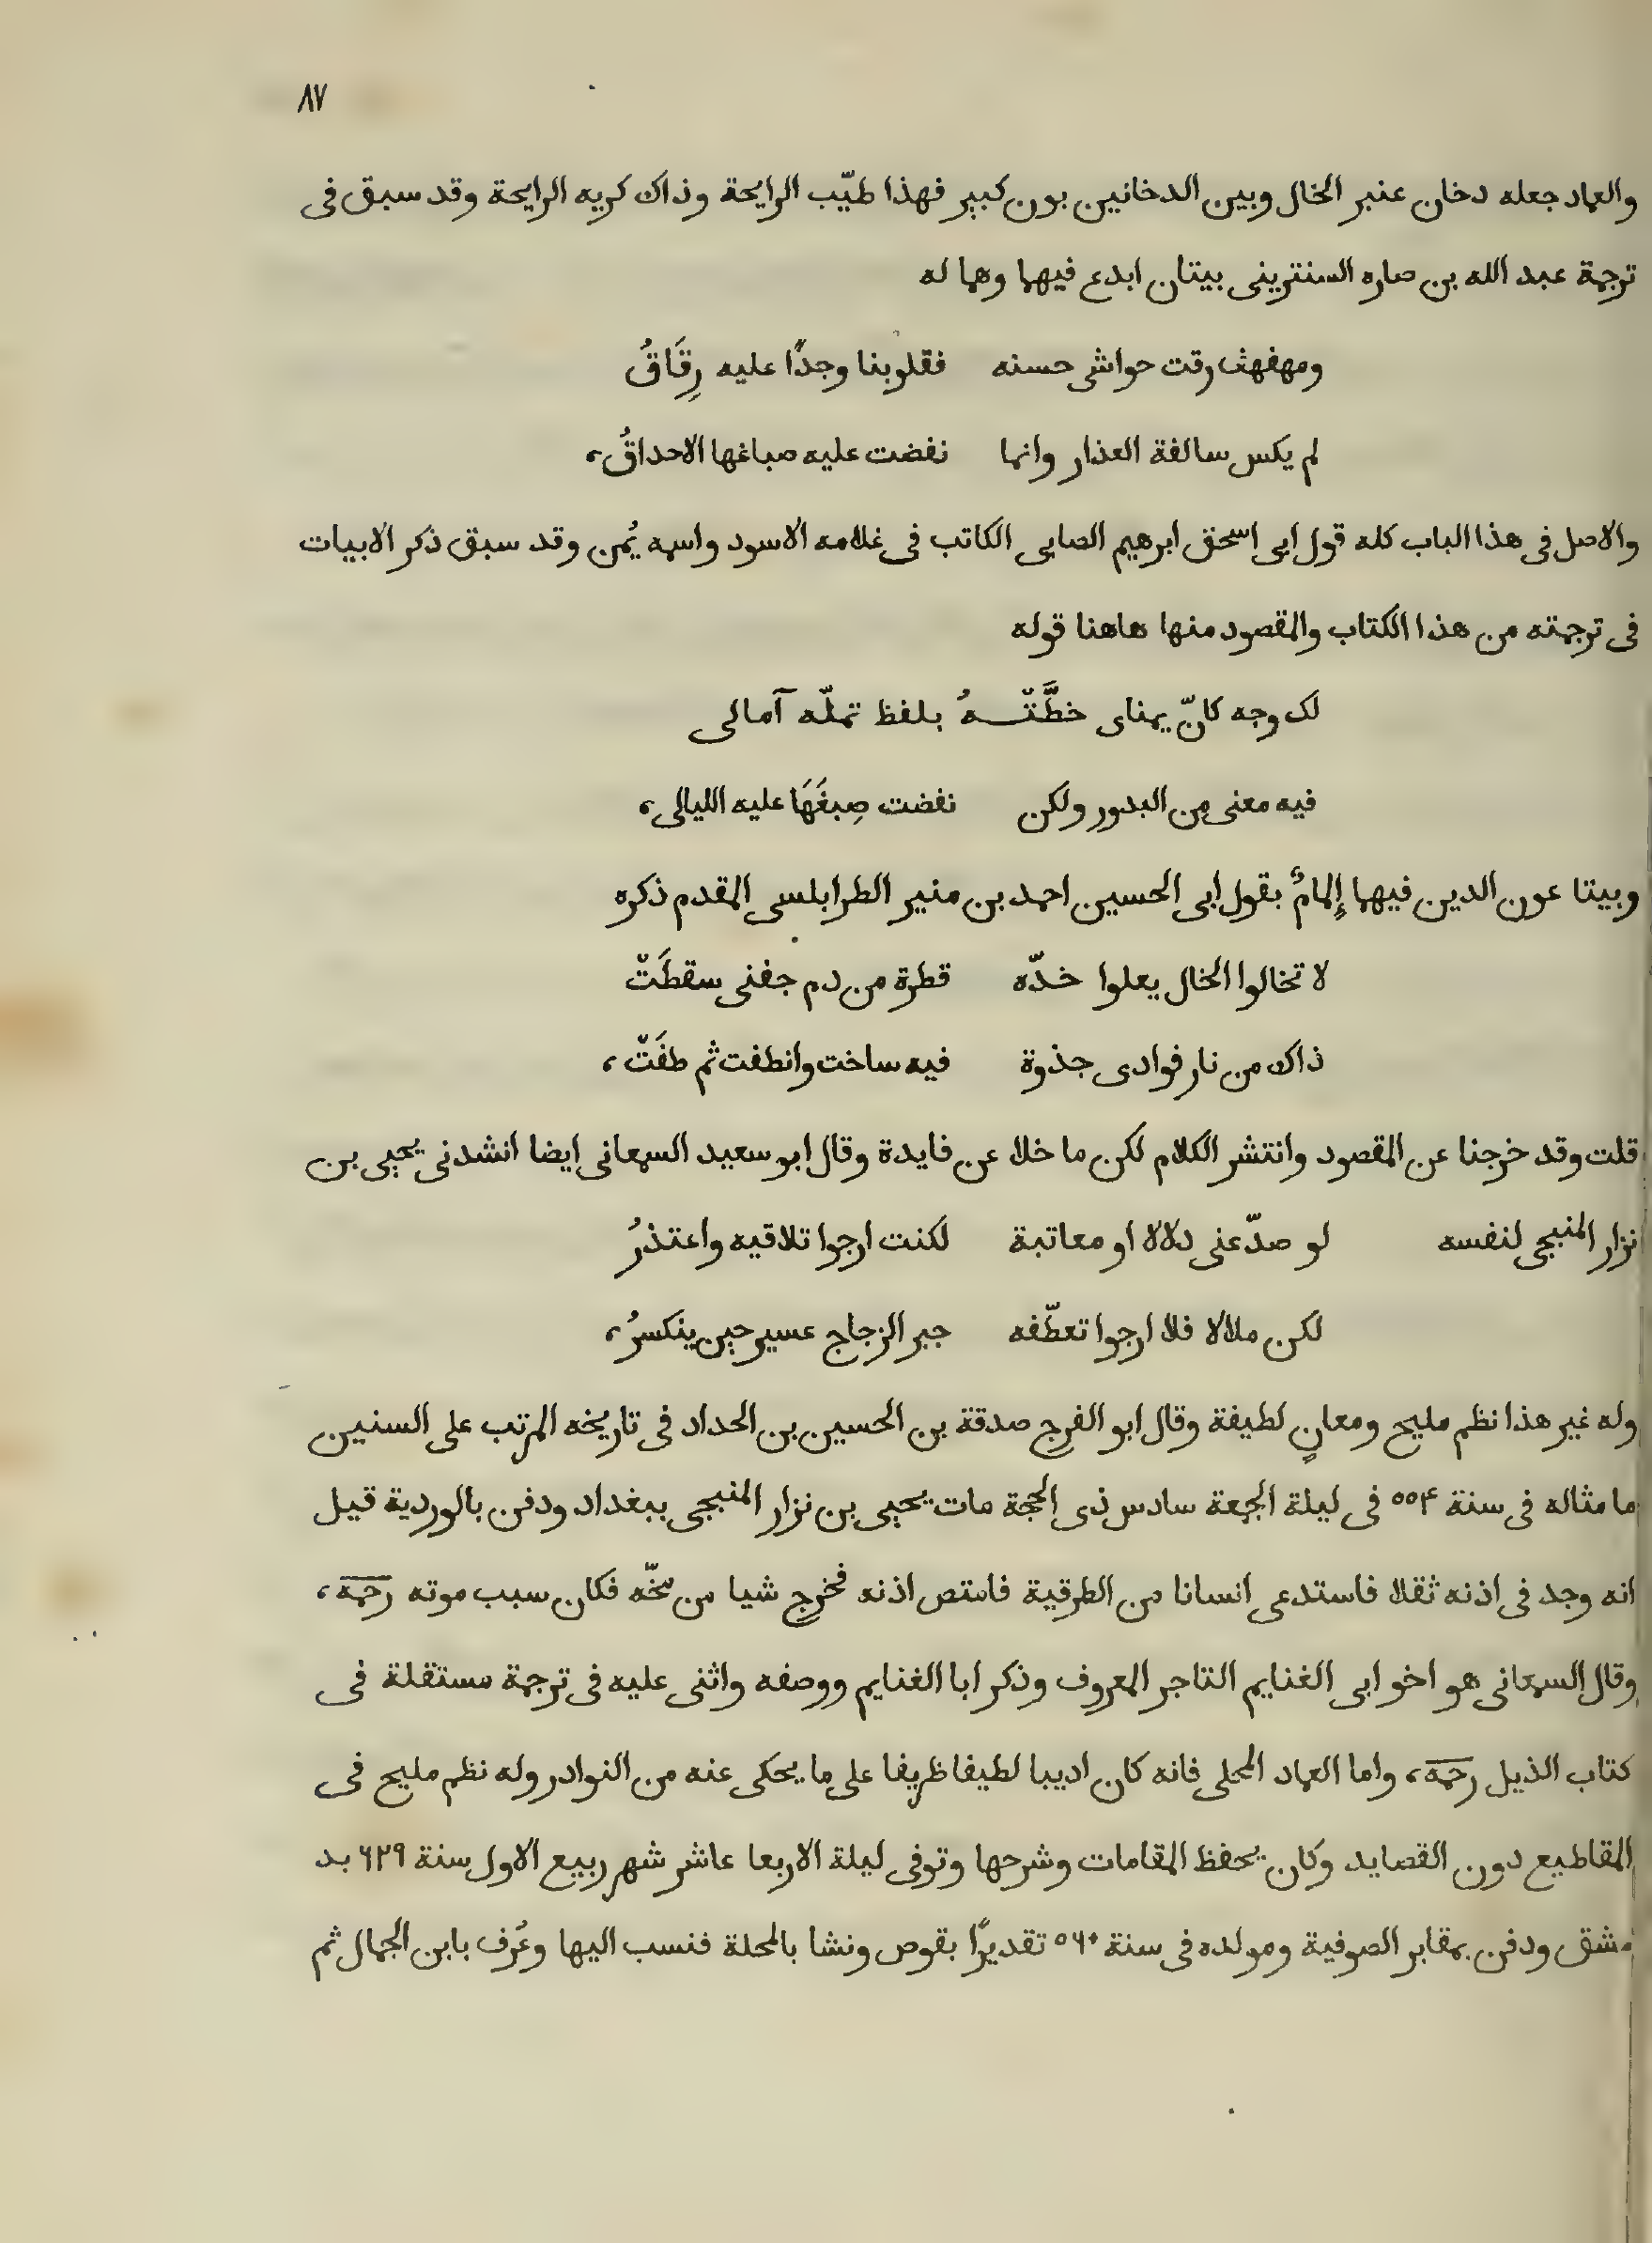 ٨٧
والعماد جعله دخان عنبر الخال وبين الدخانين بون كبير فهذا طيّب الرايحة وذاك كريه الرايحة وقد سبق فى
ترجمة عبد الله بن صاره السنترينى بيتان ابدع فيهما وهما له
ومهفهف رقت حواشى حسنه فقلوبنا وجدًا عليه رِقَاقُ
لم يكس سالفة العذار وانما نفضت عليه صباغها الاحداقُ،
والاصل فى هذا الباب كله قول ابى اسحق ابرهيم الصابى الكاتب فى غلامه الاسود واسمه يُمن وقد سبق ذكر الابيات
فى ترجمته من هذا الكتاب والمقصود منها هاهنا قوله
لك وجه كانّ يمناى خطَّتْــهُ بلفظ تملّه آمالى
فيه معنى من البدور ولكن نفضت صِبغَهَا عليه الليالى،
وبيتا عون الدين فيهما إِلمامٌ بقول ابى الحسين احمد بن منير الطرابلسى المقدم ذكره
لا تخالوا الخال يعلوا خدّه قطرة من دم جفنى سقطَتْ
ذاك من نار فوادى جذوة فيه ساخت وانطفت ثم طفَتْ،
قلت وقد خرجنا عن المقصود وانتشر الكلام لكن ما خلا عن فايدة وقال ابو سعيد السمعانى ايضا انشدنى يحيى بن
نزار المنبجى لنفسه لو صدّ عنى دلالا او معاتبة لكنت ارجوا تلاقيه واعتذرُ
لكن ملالا فلا ارجوا تعطّفه جبر الزجاج عسير حين ينكسرُ،
وله غير هذا نظم مليح ومعانٍ لطيفة وقال ابو الفرج صدقة بن الحسين بن الحداد فى تاريخه المرتب على السنين
ما مثاله فى سنة ٥٥۴ فى ليلة الجمعة سادس ذى الحجة مات يحيى بن نزار المنبجى ببغداد ودفن بالوردية قيل
انه وجد فى اذنه ثقلا فاستدعى انسانا من الطرقية فامتص اذنه فخرج شيا من مخّه فكان سبب موته رحمه،
وقال السمعانى هو اخو ابى الغنايم التاجر المعروف وذكر ابا الغنايم ووصفه واثنى عليه فى ترجمة مستقلة فى
كتاب الذيل رحمه، واما العماد المحلى فانه كان اديبا لطيفا ظريفا على ما يحكى عنه من النوادر وله نظم مليح فى
المقاطيع دون القصايد وكان يحفظ المقامات وشرحها وتوفى ليلة الاربعا عاشر شهر ربيع الاول سنة ٦٢٩ بد
مشق ودفن بمقابر الصوفية ومولده فى سنة ٥٦٠ تقديرًا بقوص ونشا بالمحلة فنسب اليها وعُرف بابن الجمال ثم